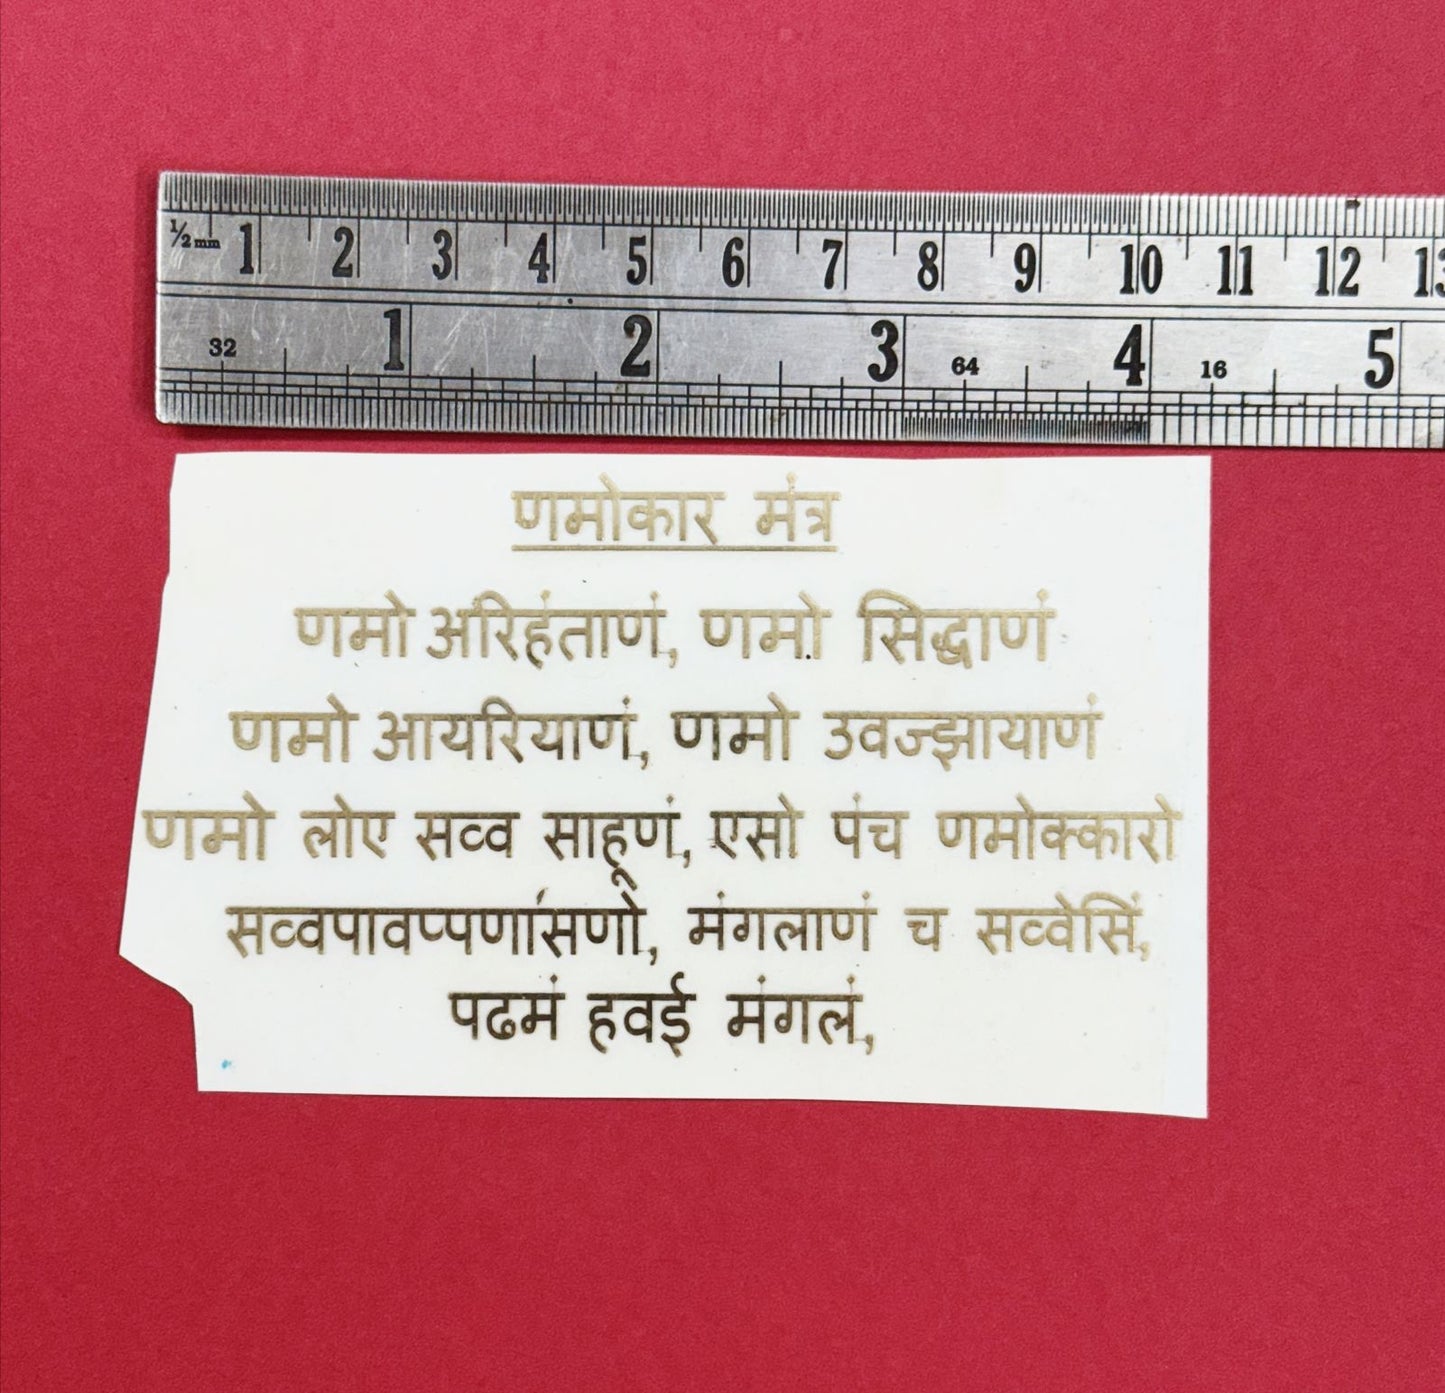 ½ mm 1 2 3 4 5 6 7 8 9 10 11 12 13
1 2 3 4 5
32 64 16
णमोकार मंत्र
णमो अरिहंताणं, णमो सिद्धाणं
णमो आयरियाणं, णमो उवज्झायाणं
णमो लोए सव्व साहूणं, एसो पंच णमोक्कारो
सव्वपावप्पणांसणो, मंगलाणं च सव्वेसिं,
पढमं हवई मंगलं,